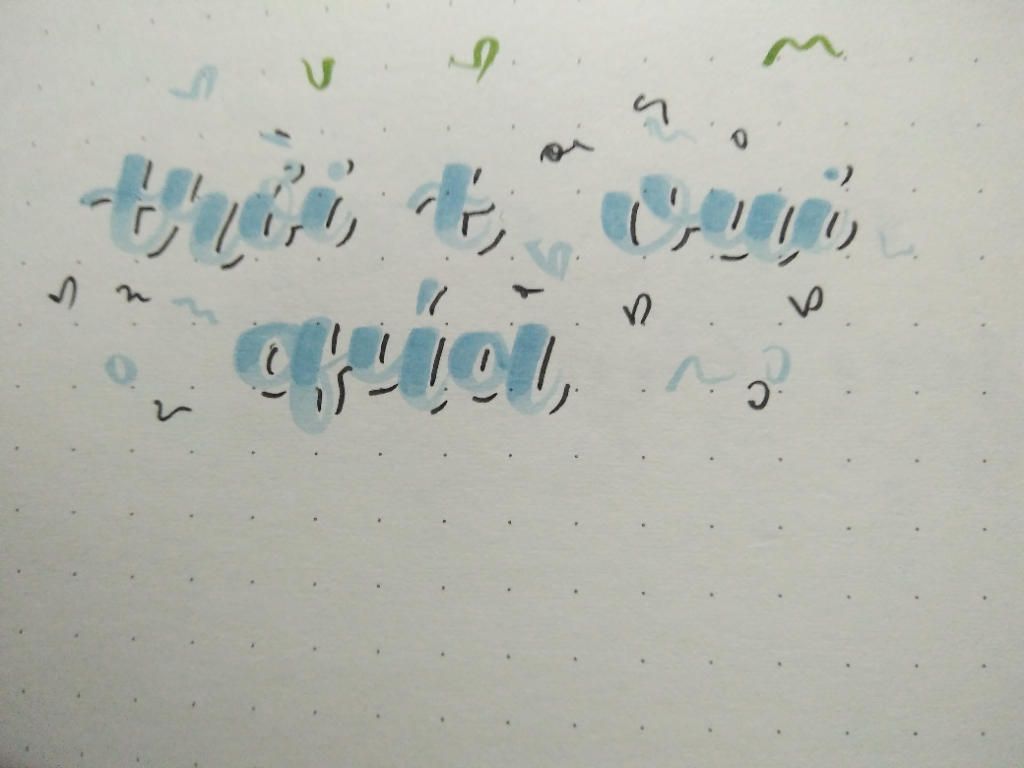 trời t vui
quá